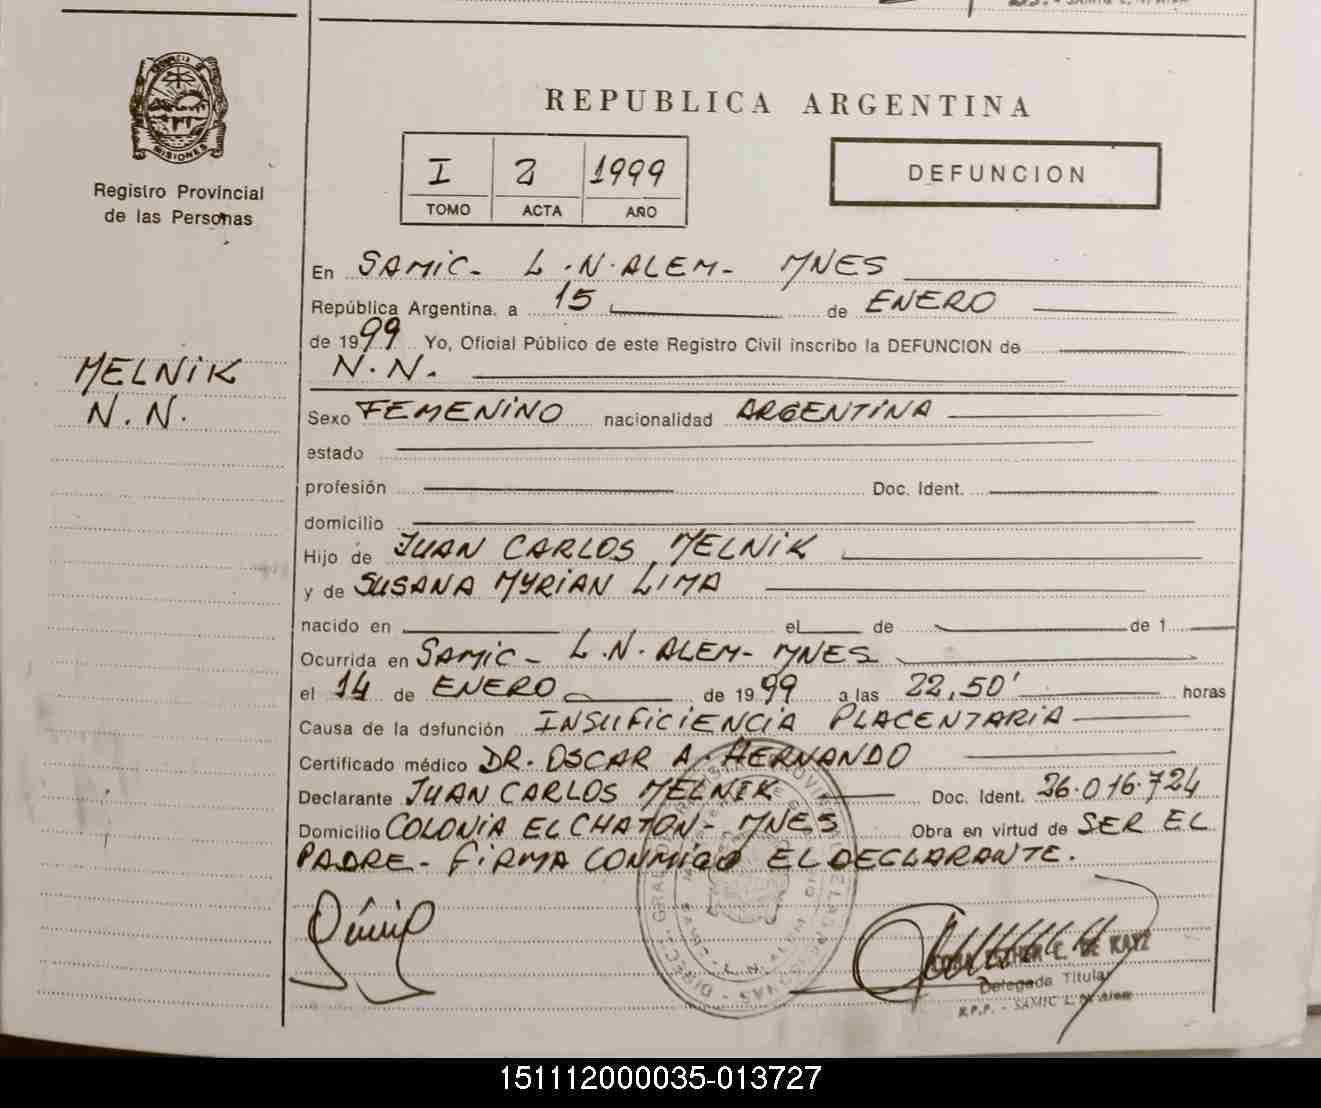 PROVINCIA DE
MISIONES
Registro Provincial
de las Personas
MELNIK
N.N.
REPUBLICA ARGENTINA
I 2 1999
TOMO ACTA AÑO
DEFUNCION
En SAMIC- L.N.ALEM- MNES
República Argentina, a 15 de ENERO
de 1999 Yo, Oficial Público de este Registro Civil inscribo la DEFUNCION de
N.N.
Sexo FEMENINO nacionalidad ARGENTINA
estado
profesión Doc. Ident.
domicilio
Hijo de JUAN CARLOS MELNIK
y de SUSANA MYRIAN LIMA
nacido en el de de 1
Ocurrida en SAMIC- L.N. ALEM- MNES
el 14 de ENERO de 1999 a las 22,50' horas
Causa de la defunción INSUFICIENCIA PLACENTARIA
Certificado médico DR. OSCAR A. HERNANDO
Declarante JUAN CARLOS MELNIK Doc. Ident. 26.016.724
Domicilio COLONIA EL CHATON- MNES Obra en virtud de SER EL
PADRE- FIRMA CONMIGO EL DECLARANTE.
ESTHER E. DE KAYZ
Delegada Titular
R.P.P. - SAMIC L. N. Alem
151112000035-013727